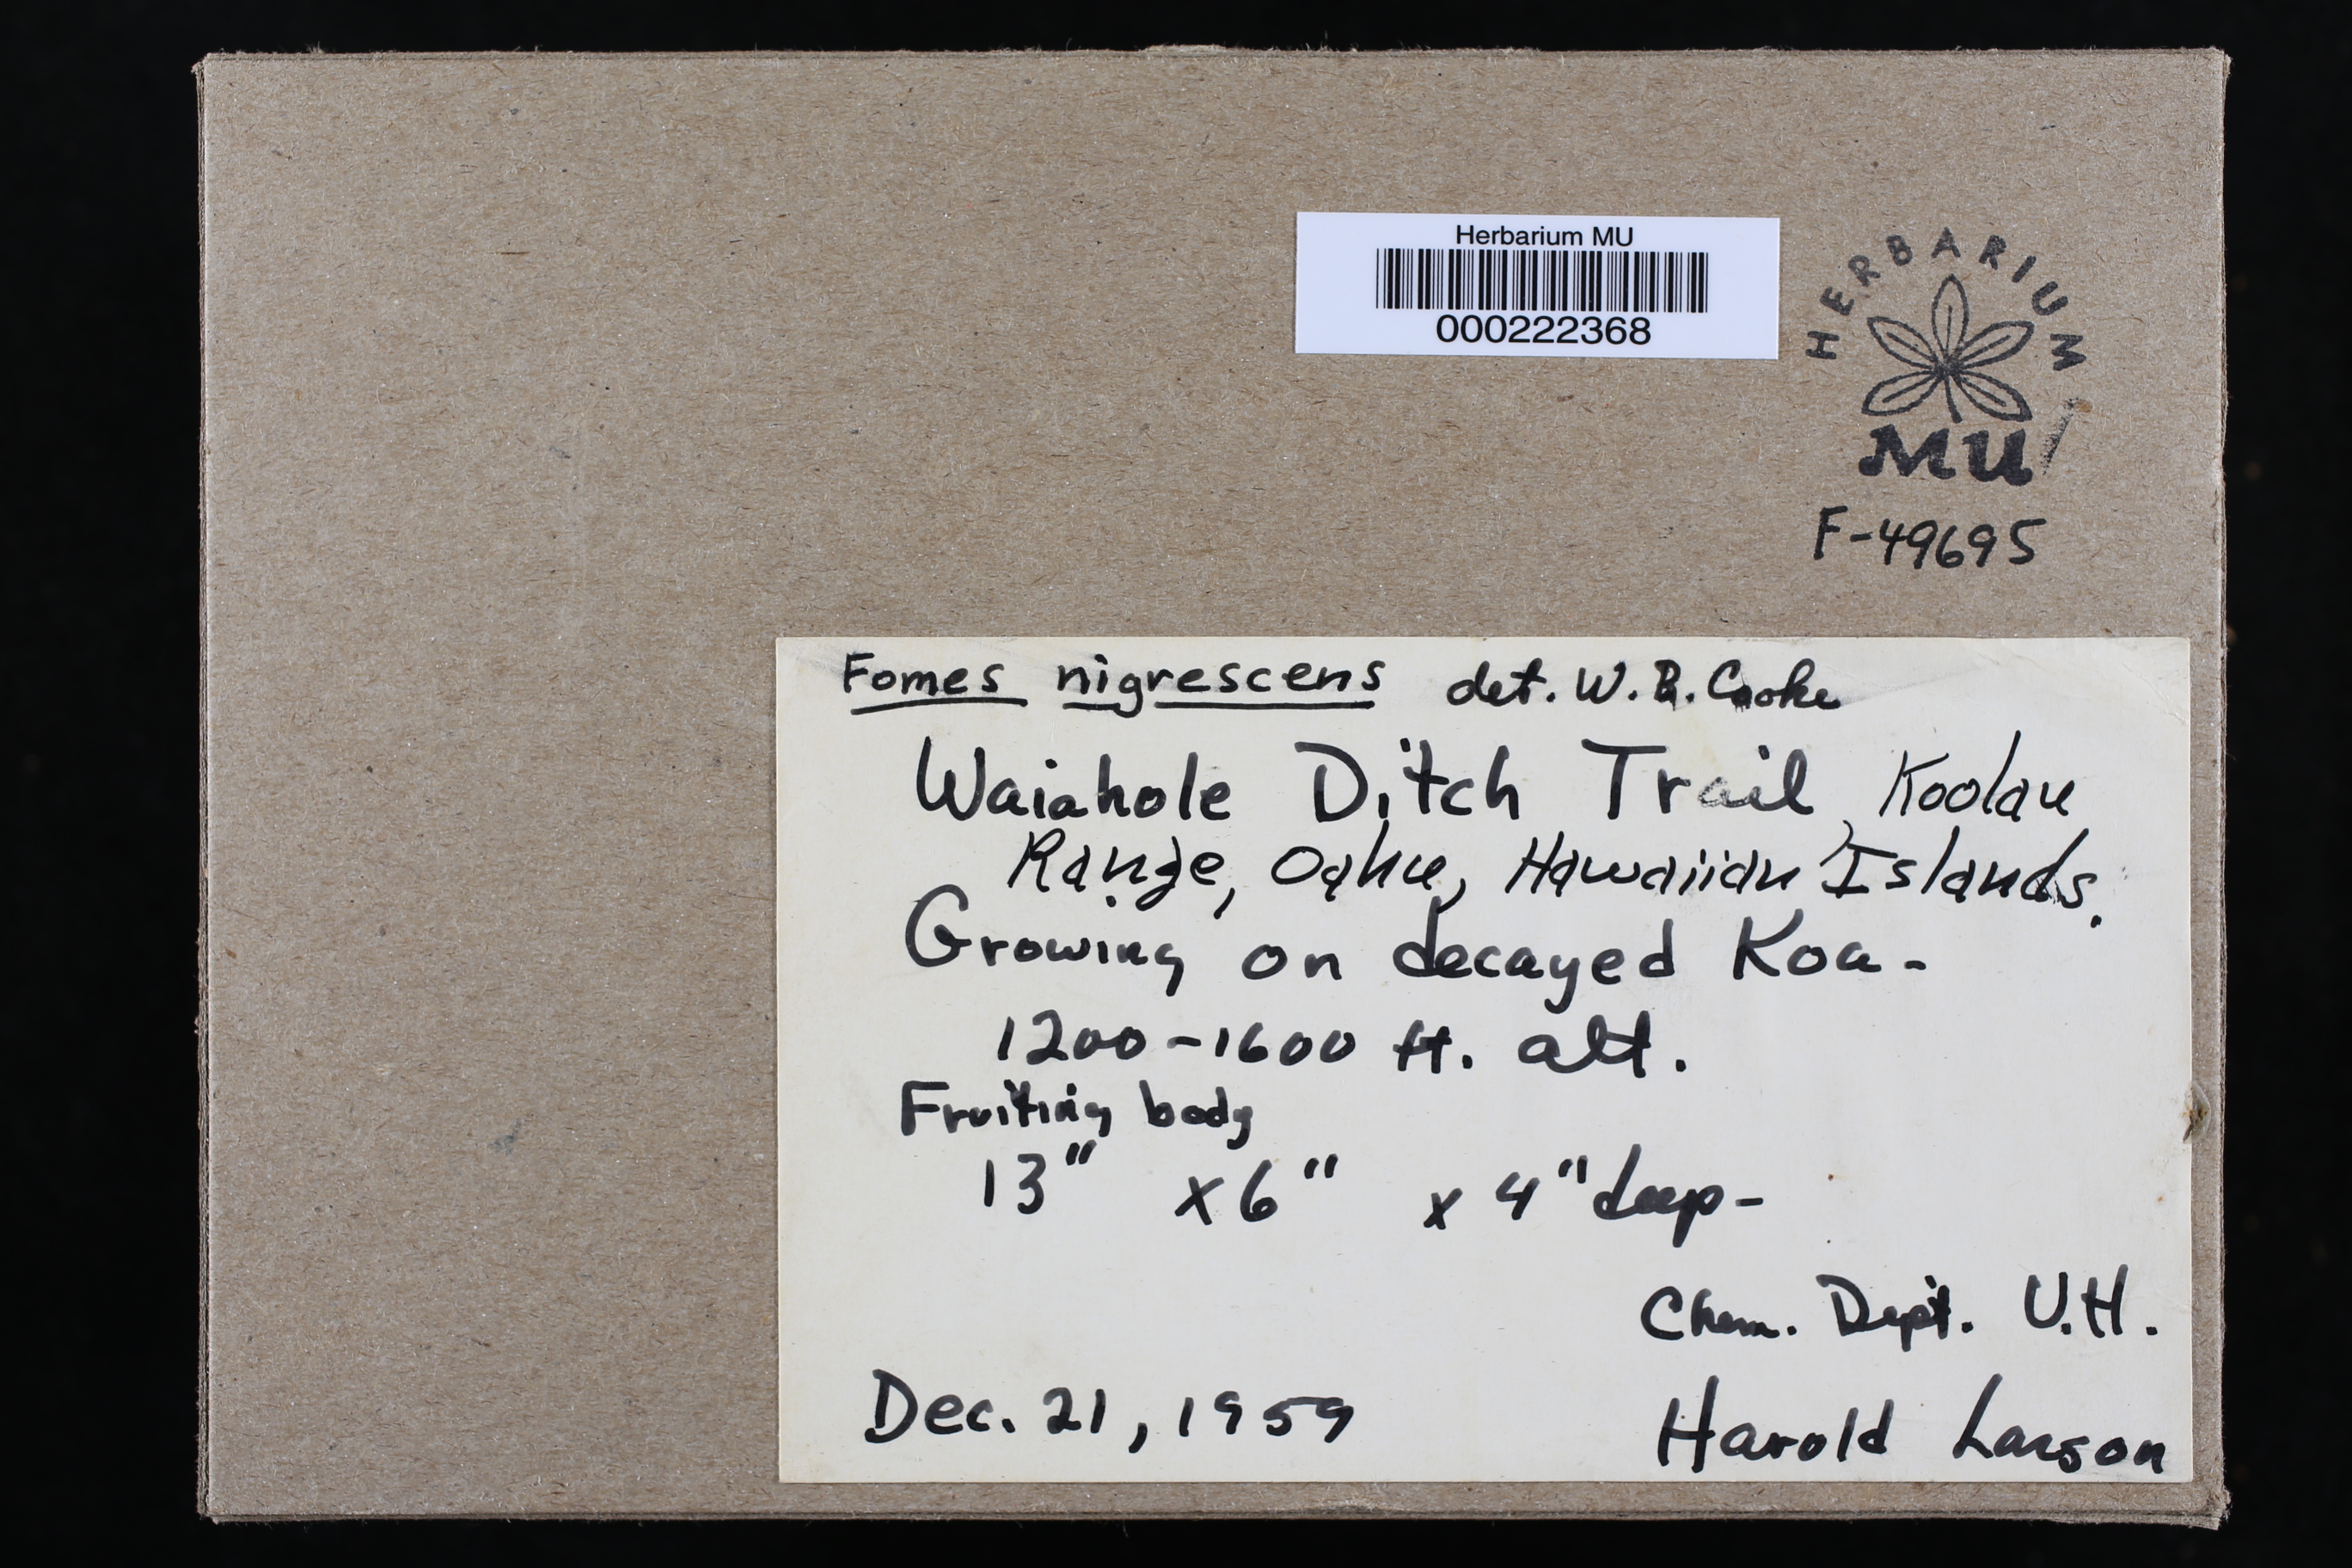 Herbarium MU
000222368
HERBARIUM
MU
F-49695
Fomes nigrescens det. W.B. Cooke
Waiahole Ditch Trail, Koolau
Range, Oahu, Hawaiian Islands.
Growing on decayed Koa -
1200-1600 ft. alt.
Fruiting body
13" x 6" x 4" deep -
Chem. Dept. U.H.
Dec. 21, 1959 Harold Larson